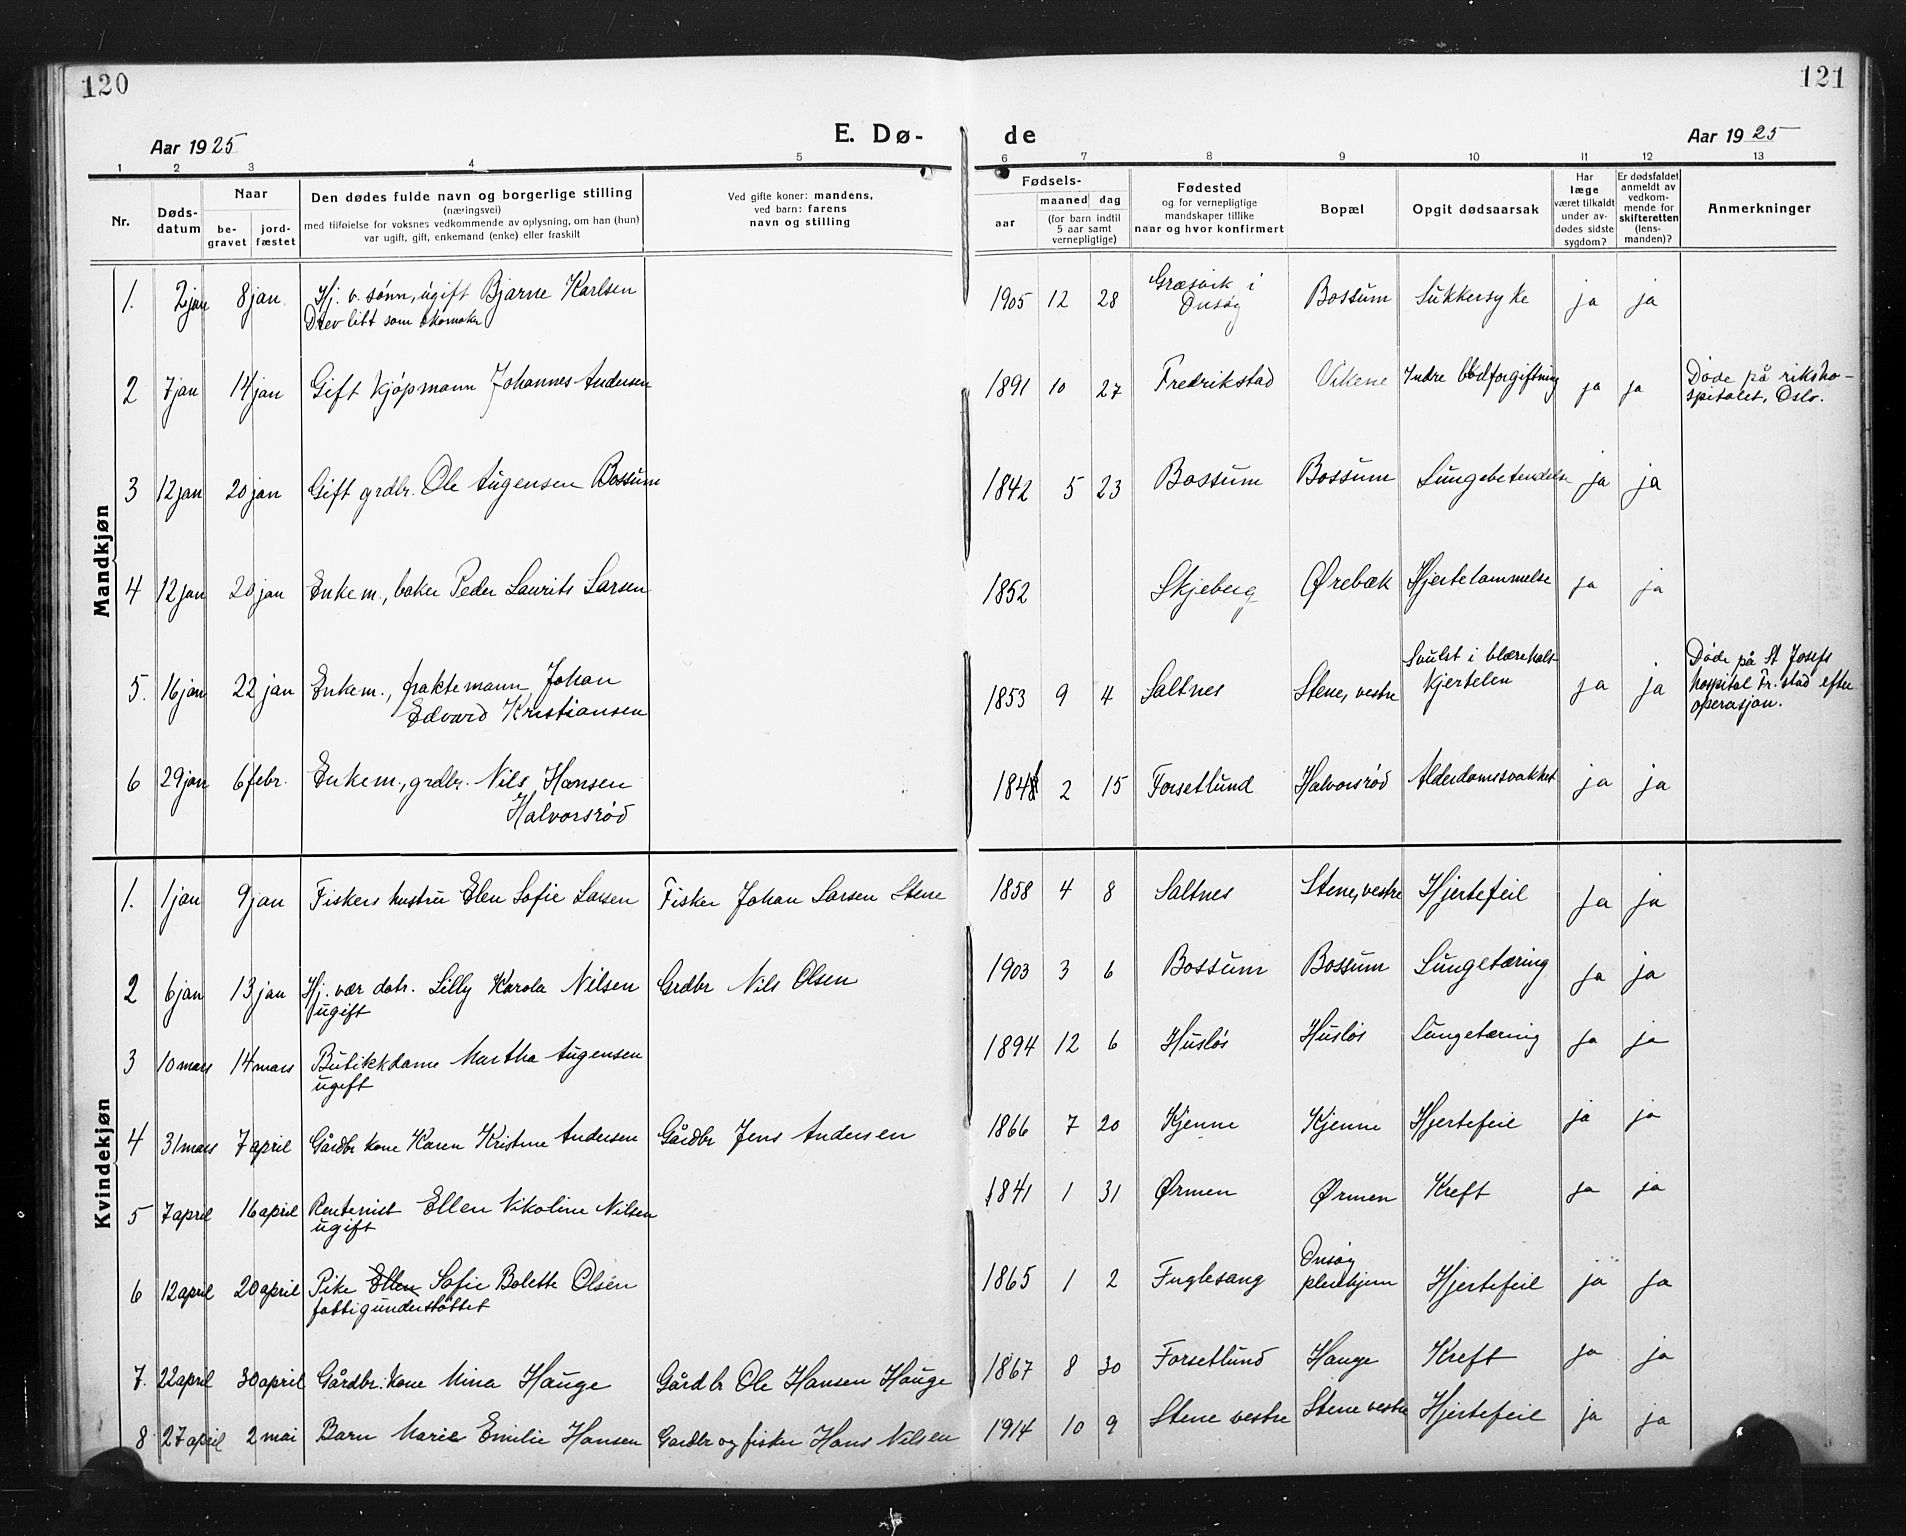 120
121
Aar 1925
E. Dø-
de
Aar 1925
1 2 3 4 5 6 7 8 9 10 11 12 13
Nr.
Døds-
datum
Naar
be-
gravet
jord-
fæstet
Den dødes fulde navn og borgerlige stilling
(næringsvei)
med tilføielse for voksnes vedkommende av oplysning, om han (hun)
var ugift, gift, enkemand (enke) eller fraskilt
Ved gifte koner: mandens,
ved barn: farens
navn og stilling
Fødsels-
aar
maaned dag
(for barn indtil
5 aar samt
vernepligtige)
Fødested
og for vernepligtige
mandskaper tillike
naar og hvor konfirmert
Bopæl
Opgit dødsaarsak
Har
læge
været tilkaldt
under av-
dødes sidste
sygdom?
Er dødsfaldet
anmeldt av
vedkom-
mende for
skifteretten
(lens-
manden)?
Anmerkninger
Mandkjøn
1. 2 jan 8 jan Hj. v. sønn, ugift Bjarne Karlsen 1905 12 28 Græsvik i Bossum Sukkersyke ja ja
Drev litt som skomaker Onsøy
2 7 jan 14 jan Gift Kjøpmann Johannes Andersen 1891 10 27 Fredrikstad Vikene Indre blodforgiftning ja ja Døde på riksho-
spitalet, Oslo.
3 12 jan 20 jan Gift grdbr. Ole Augensen Bossum 1842 5 23 Bossum Bossum Lungebetendelse ja ja
4 12 jan 20 jan Enkem., baker Peder Laurits Larsen 1852 Skjeberg Ørebæk Hjertelammelse ja ja
5. 16 jan 22 jan Enkem., fraktemann Johan 1853 9 4 Saltnes Stene, vestre Svulst i blærehals- ja ja Døde på St Josefs
Edvard Kristiansen kjertelen hospital Fr.stad efter
operasjon.
6 29 jan 6 febr. Enkem., grdbr. Nils Hansen 2 15 Forsetlund Halvorsrød Alderdomssvakhet ja ja
Halvorsrød
Kvindekjøn
1. 1 jan 9 jan Fiskers hustru Elen Sofie Larsen Fisker Johan Larsen Stene 1858 4 8 Saltnes Stene, vestre Hjertefeil ja ja
2 6 jan 13 jan Hj. vær datr. Lilly Karola Nilsen Grdbr Nils Olsen 1903 3 6 Bossum Bossum Lungetæring ja ja
ugift
3 10 mars 14 mars Butikkdame Martha Augensen 1894 12 6 Husløs Husløs Lungetæring ja ja
ugift
4 31 mars 7 april Gårdbr kone Karen Kristine Andersen Gårdbr Jens Andersen 1866 7 20 Kjenne Kjenne Hjertefeil ja ja
5 7 april 16 april Rentenist Ellen Nikoline Nilsen 1841 1 31 Ørmen Ørmen Kreft ja ja
ugift
6 12 april 20 april Pike Ellen Sofie Bolette Olsen 1865 1 2 Fuglesang Onsøy Hjertefeil ja ja
fattigunderstøttet pleiehjem
7. 22 april 30 april Gårdbr. kone Mina Hauge Gårdbr Ole Hansen Hauge 1867 8 30 Forsetlund Hauge Kreft ja ja
8 27 april 2 mai Barn Marie Emilie Hansen Gardbr og fisker Hans Nilsen 1914 10 9 Stene vestre Stene vestre Hjertefeil ja ja